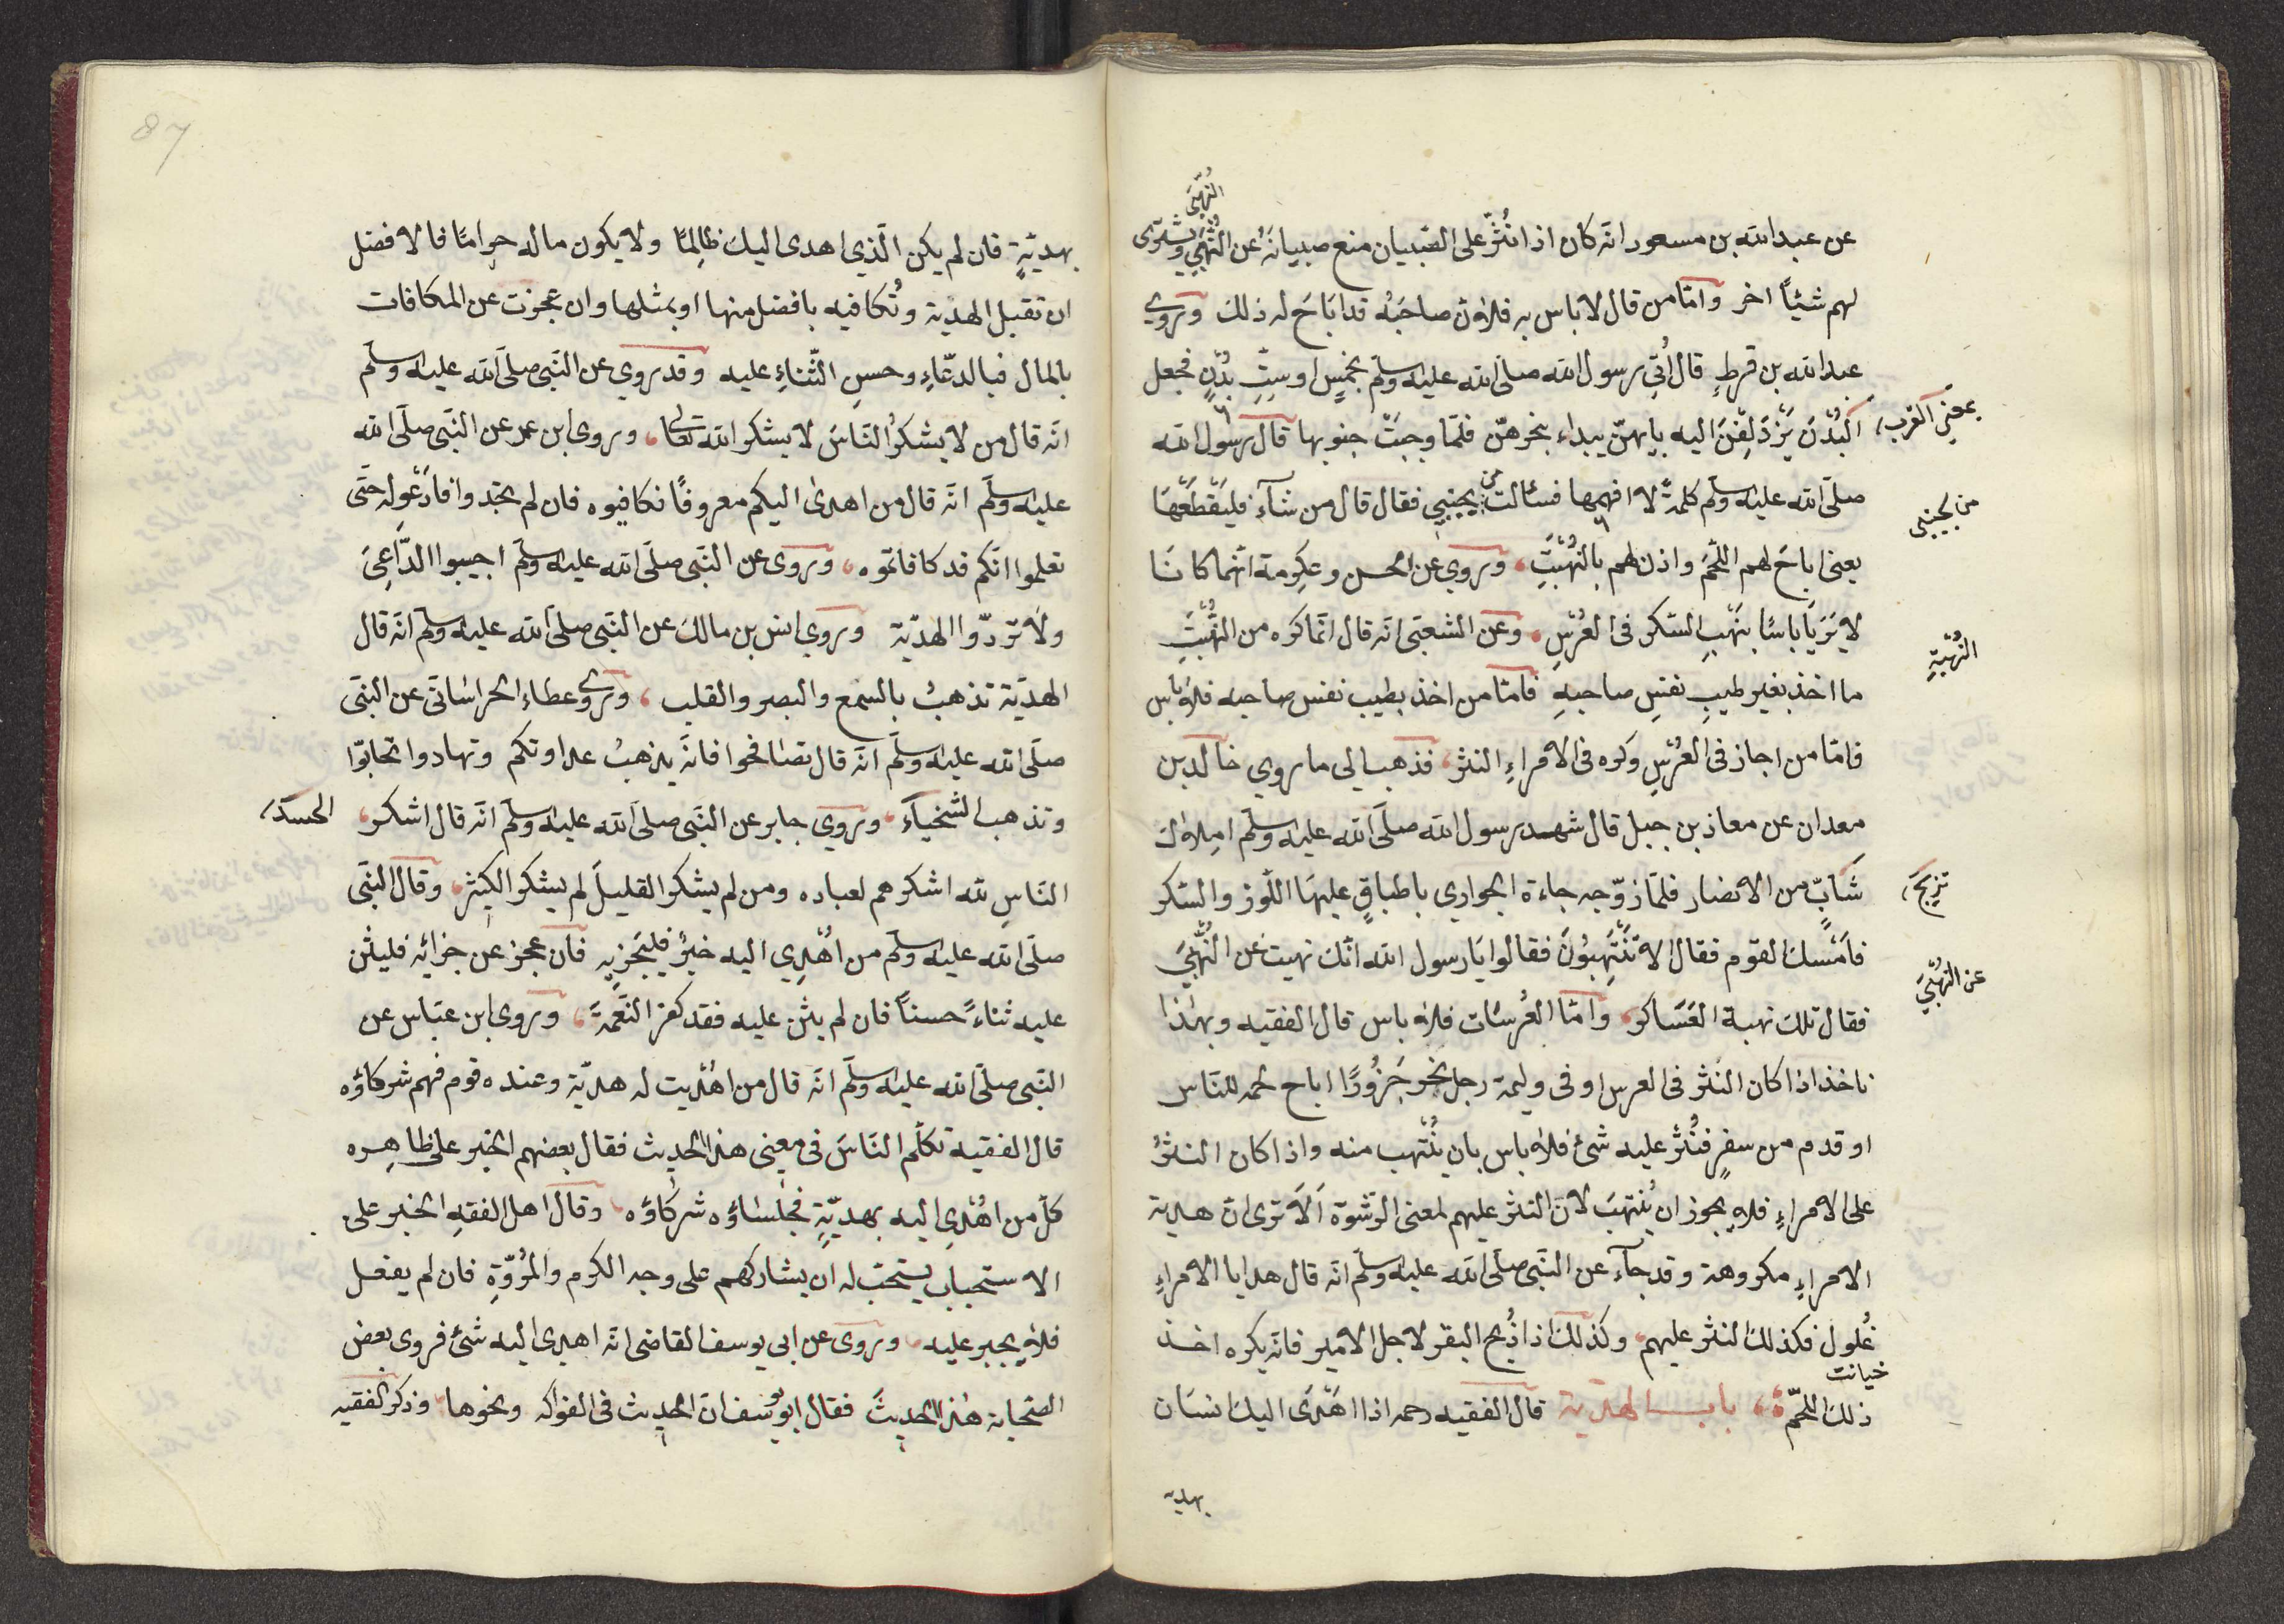 النُّهْبَى
عن عبد الله بن مسعود انّه كان اذا نُثِرَ على الصّبيان منع صبيانَهُ عن النُّهْبَى ويشترى
لهم شيئاً اخر وامّا من قال لا باس به فلانّ صاحبَهُ قد اباحَ له ذلك وروي
عبد الله بن قرطٍ قال اُتِيَ رسول الله صلّى الله عليه وسلّم بخمسٍ او ستٍّ بُدْنٍ فجعل
البُدْنَ يَزْدَلِفْنَ اليه بايهنّ يبداء بنحرهنّ فلمّا وجبَتْ جنوبها قال رسول الله
بمعنى القرب
صلّى الله عليه وسلّم كلمةً لا افهمها فسئالت من يجنبي فقال قال من شآءَ فليقْطَعْهَا
من بجنبى
يعنى اباحَ لهم اللّحْمَ واذن لهم بالنُّهْبَةِ وروي عن الحسن وعكرمة انّهما كانا
لا يَرَيَا باسًا بنَهْبِ السّكر فى العُرْسِ وعن الشعبى انه قال انّما كره من النُّهْبَةِ
النُّهْبَةِ
ما اخذ بغير طيبِ نفسِ صاحبهِ فامّا من اخذ بطيب نفس صاحبه فلا باس
فامّا من اجاز فى العُرْسِ وكره فى الامراءِ النثر فذهب الى ما روي خالد بن
معدان عن معاذ بن جبل قال شهد رسول الله صلّى الله عليه وسلّم املاك
شَابٍّ من الانصار فلمّا زوّجه جاءة الجوارى باطباقٍ عليهَا اللّوز والسّكر
تزويج
فاَمْسك القوم فقال الا تَنْتَهِبُونَ فقالوا يَا رسول الله انّك نهيت عن النُّهْبَى
عن النُّهْبَى
فقال تلك نهبة العَسَاكر وامّا العُرسَات فلا باس قال الفقيه وبهذا
ناخذ اذا كان النّثر فى العرس او فى وليمة رجل نحر جَزُورًا اباح لحمه للنّاس
او قدم من سفرٍ فنُثر عليه شئ فلا باس بان يُنْتهب منه واذا كان النثرُ
على الامراءِ فلا يجوز ان يُنتهَبَ لانّ النثر عليهم لمعنى الرّشوة اَلَا ترى انّ هدية
الامراءِ مكروهة وقد جآء عن النّبى صلّى الله عليه وسلّم انّه قال هدايا الامراءِ
غُلول فكذلك النثر عليهم وكذلك اذا ذُبح البقر لاجل الامير فانّه يكره اخذ
خيانت
ذلك اللحمِ باب الهديّة قال الفقيه رحمه اذا اهْدَى اليك انسَان
بهديه
87
بهديّةٍ فان لم يكن الّذي اهدى اليك ظالِمًا ولا يكون ماله حرامًا فالافضل
ان تقبل الهديّة وتُكافيه بافضل منها او بمثلها وان عجزت عن المكافات
بالمال فبالدّعاءِ وحسنِ الثّناءِ عليه وقد روي عن النّبى صلّى الله عليه وسلّم
انّه قال من لا يشكُر النّاسَ لا يشكر الله تعالى وروى ابن عمر عن النّبى صلّى الله
عليه وسلّم انّه قال من اهدى اليكم معروفًا فكافيوه فان لم تجدوا فادْعُوله حتّى
تعلموا انّكم قد كافاتموه وروى عن النّبى صلّى الله عليه وسلّم اجيبوا الدّاعِىَ
ولا تردّوا الهديّة وروي انس بن مالك عن النّبى صلّى الله عليه وسلّم انّه قال
الهديّة تذهبُ بالسّمع والبصر والقلب وروى عطاء الخراسانى عن النبى
صلّى الله عليه وسلّم انّه قال تصافحوا فانّه يذهبُ عداوتكم وتهادوا تحابّوا
وتذهب الشّحْناء وروي جابر عن النّبى صلّى الله عليه وسلّم انّه قال اشكر
الحسد
النّاسِ لله اشكرهم لعباده ومن لم يشكر القليلَ لم يشكر الكثير وقال النّبى
صلّى الله عليه وسلّم من اهْدِي اليه خيرٌ فليَجزِ به فان عجز عن جزائه فليثن
عليه ثناءً حسنًا فان لم يثن عليه فقد كفر النّعمةَ وروى ابن عبّاس عن
النّبى صلّى الله عليه وسلّم انّه قال من اهْديت له هديّة وعنده قوم فهم شركاؤه
قال الفقيه تكلّم النّاسَ فى معنى هذا الحديث فقال بعضهم الخبر على ظاهره
كلّ من اهْدِى اليه بهديّةٍ فجلساؤه شركاؤه وقال اهل الفقهِ الخبر على
الاستحباب يستحبّ له ان يشاركهم على وجه الكرم والمُروّةِ فان لم يفعل
فلا يجبر عليه وروى عن ابى يوسف القاضى انّه اهدى اليه شئ فروى بعض
الصّحابة هذا الحديثَ فقال ابو يوسف انّ الحديث فى الفواكه ونحوها وذكر الفقيه